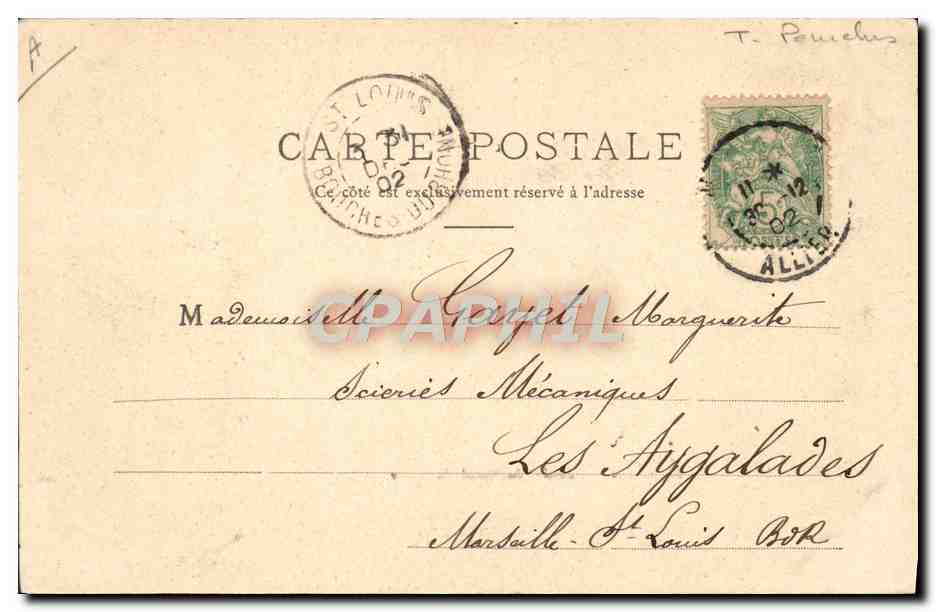 A
T.
ST LOUIS
31
DEC
02
BOUCHES DU RHONE
CARTE POSTALE
Ce côté est exclusivement réservé à l'adresse
11 * 12
30
02
ALLIER
CPAPHIL
Mademoiselle Gayet Marguerite
Scieries Mécaniques
Les Aygalades
Marseille - St-Louis BdR